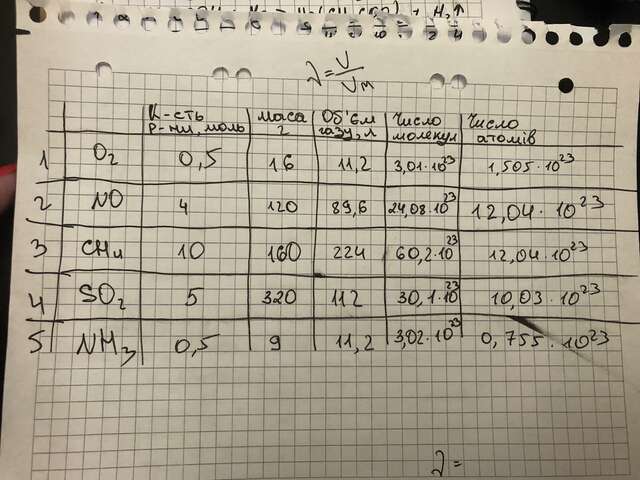 ν = V / Vм
К-сть р-ни, моль | маса г | Об'єм газу, л | Число молекул | Число атомів
1 | O₂ | 0,5 | 16 | 11,2 | 3,01·10²³ | 1,505·10²³
2 | NO | 4 | 120 | 89,6 | 24,08·10²³ | 12,04·10²³
3 | CH₄ | 10 | 160 | 224 | 60,2·10²³ | 12,04·10²³
4 | SO₂ | 5 | 320 | 112 | 30,1·10²³ | 10,03·10²³
5 | NH₃ | 0,5 | 9 | 11,2 | 3,02·10²³ | 0,755·10²³
ν =